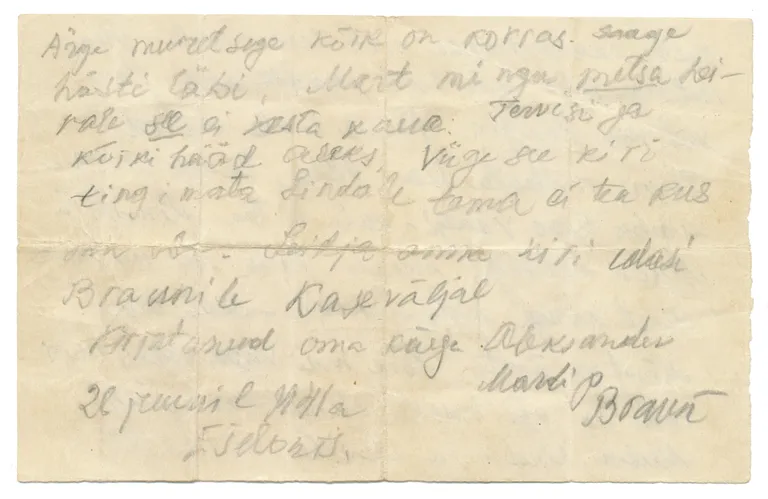 Ärge muretsege kõik on korras. saage
hästi läbi, Mart mingu metsa hei-
rale see ei kesta kaua. Tervisi ja
kõiki hääd Aleks, Viige see kiri
tingimata Lindale tema ei tea kus
oma kiri edasi
Braunile Kaseväljal
Kirjutanud oma käega Aleksander
Mardi p
Braun
26 juunil 1941a
Eselonis.